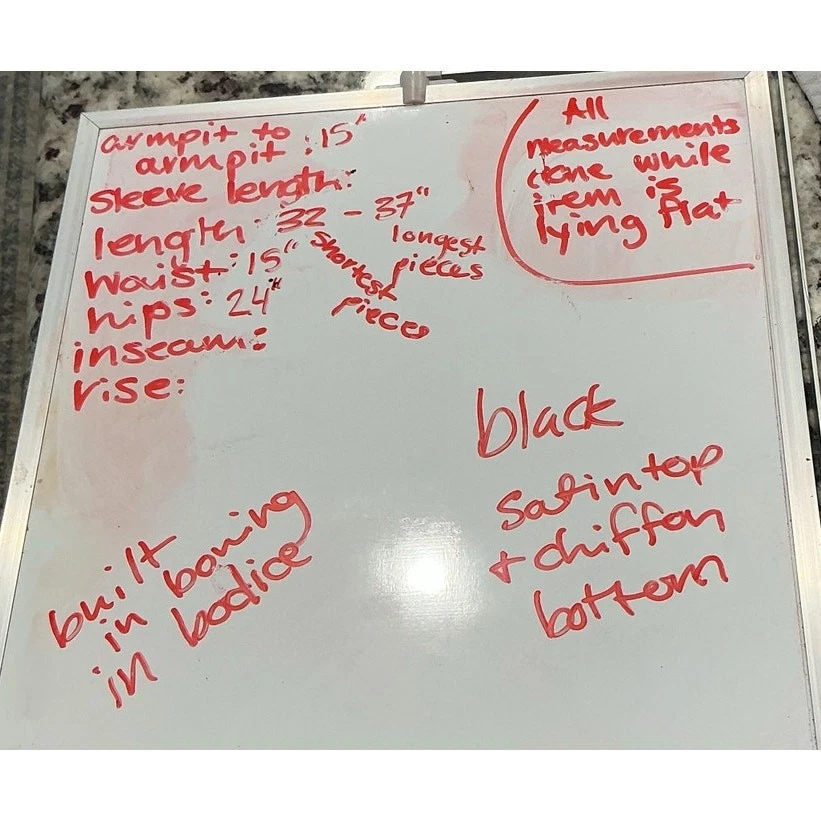 armpit to
armpit: 15"
sleeve length:
length: 32 - 37"
shortest
pieces
longest
pieces
waist: 15"
hips: 24"
inseam:
rise:
All
measurements
done while
item is
lying flat
black
satin top
+ chiffon
bottom
built
in boning
in bodice